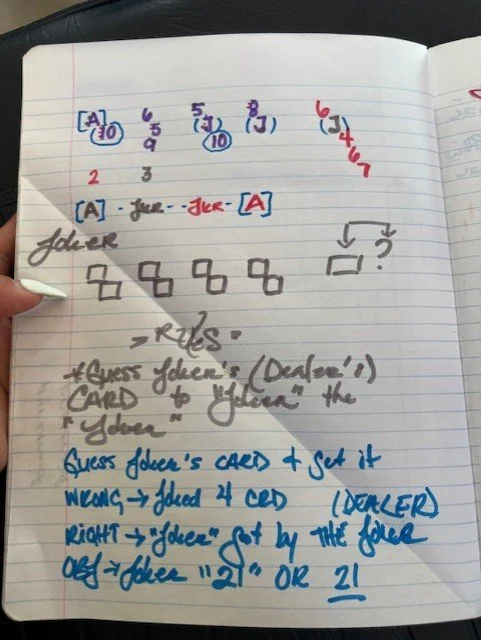 [A] 6 5 8 6
(10) 5 (J) (J) (J)
9 (10) 4
6
2 3 7
[A] - JKR - - JKR - [A]
Joker
?
- RULES =
+ Guess Joker's (Dealer's)
CARD to "Joker" the
"Joker"
Guess Joker's CARD + get it
WRONG → Joked 4 CRD (DEALER)
RIGHT → "Joker" got by THE Joker
OBJ → Joker "21" OR 21